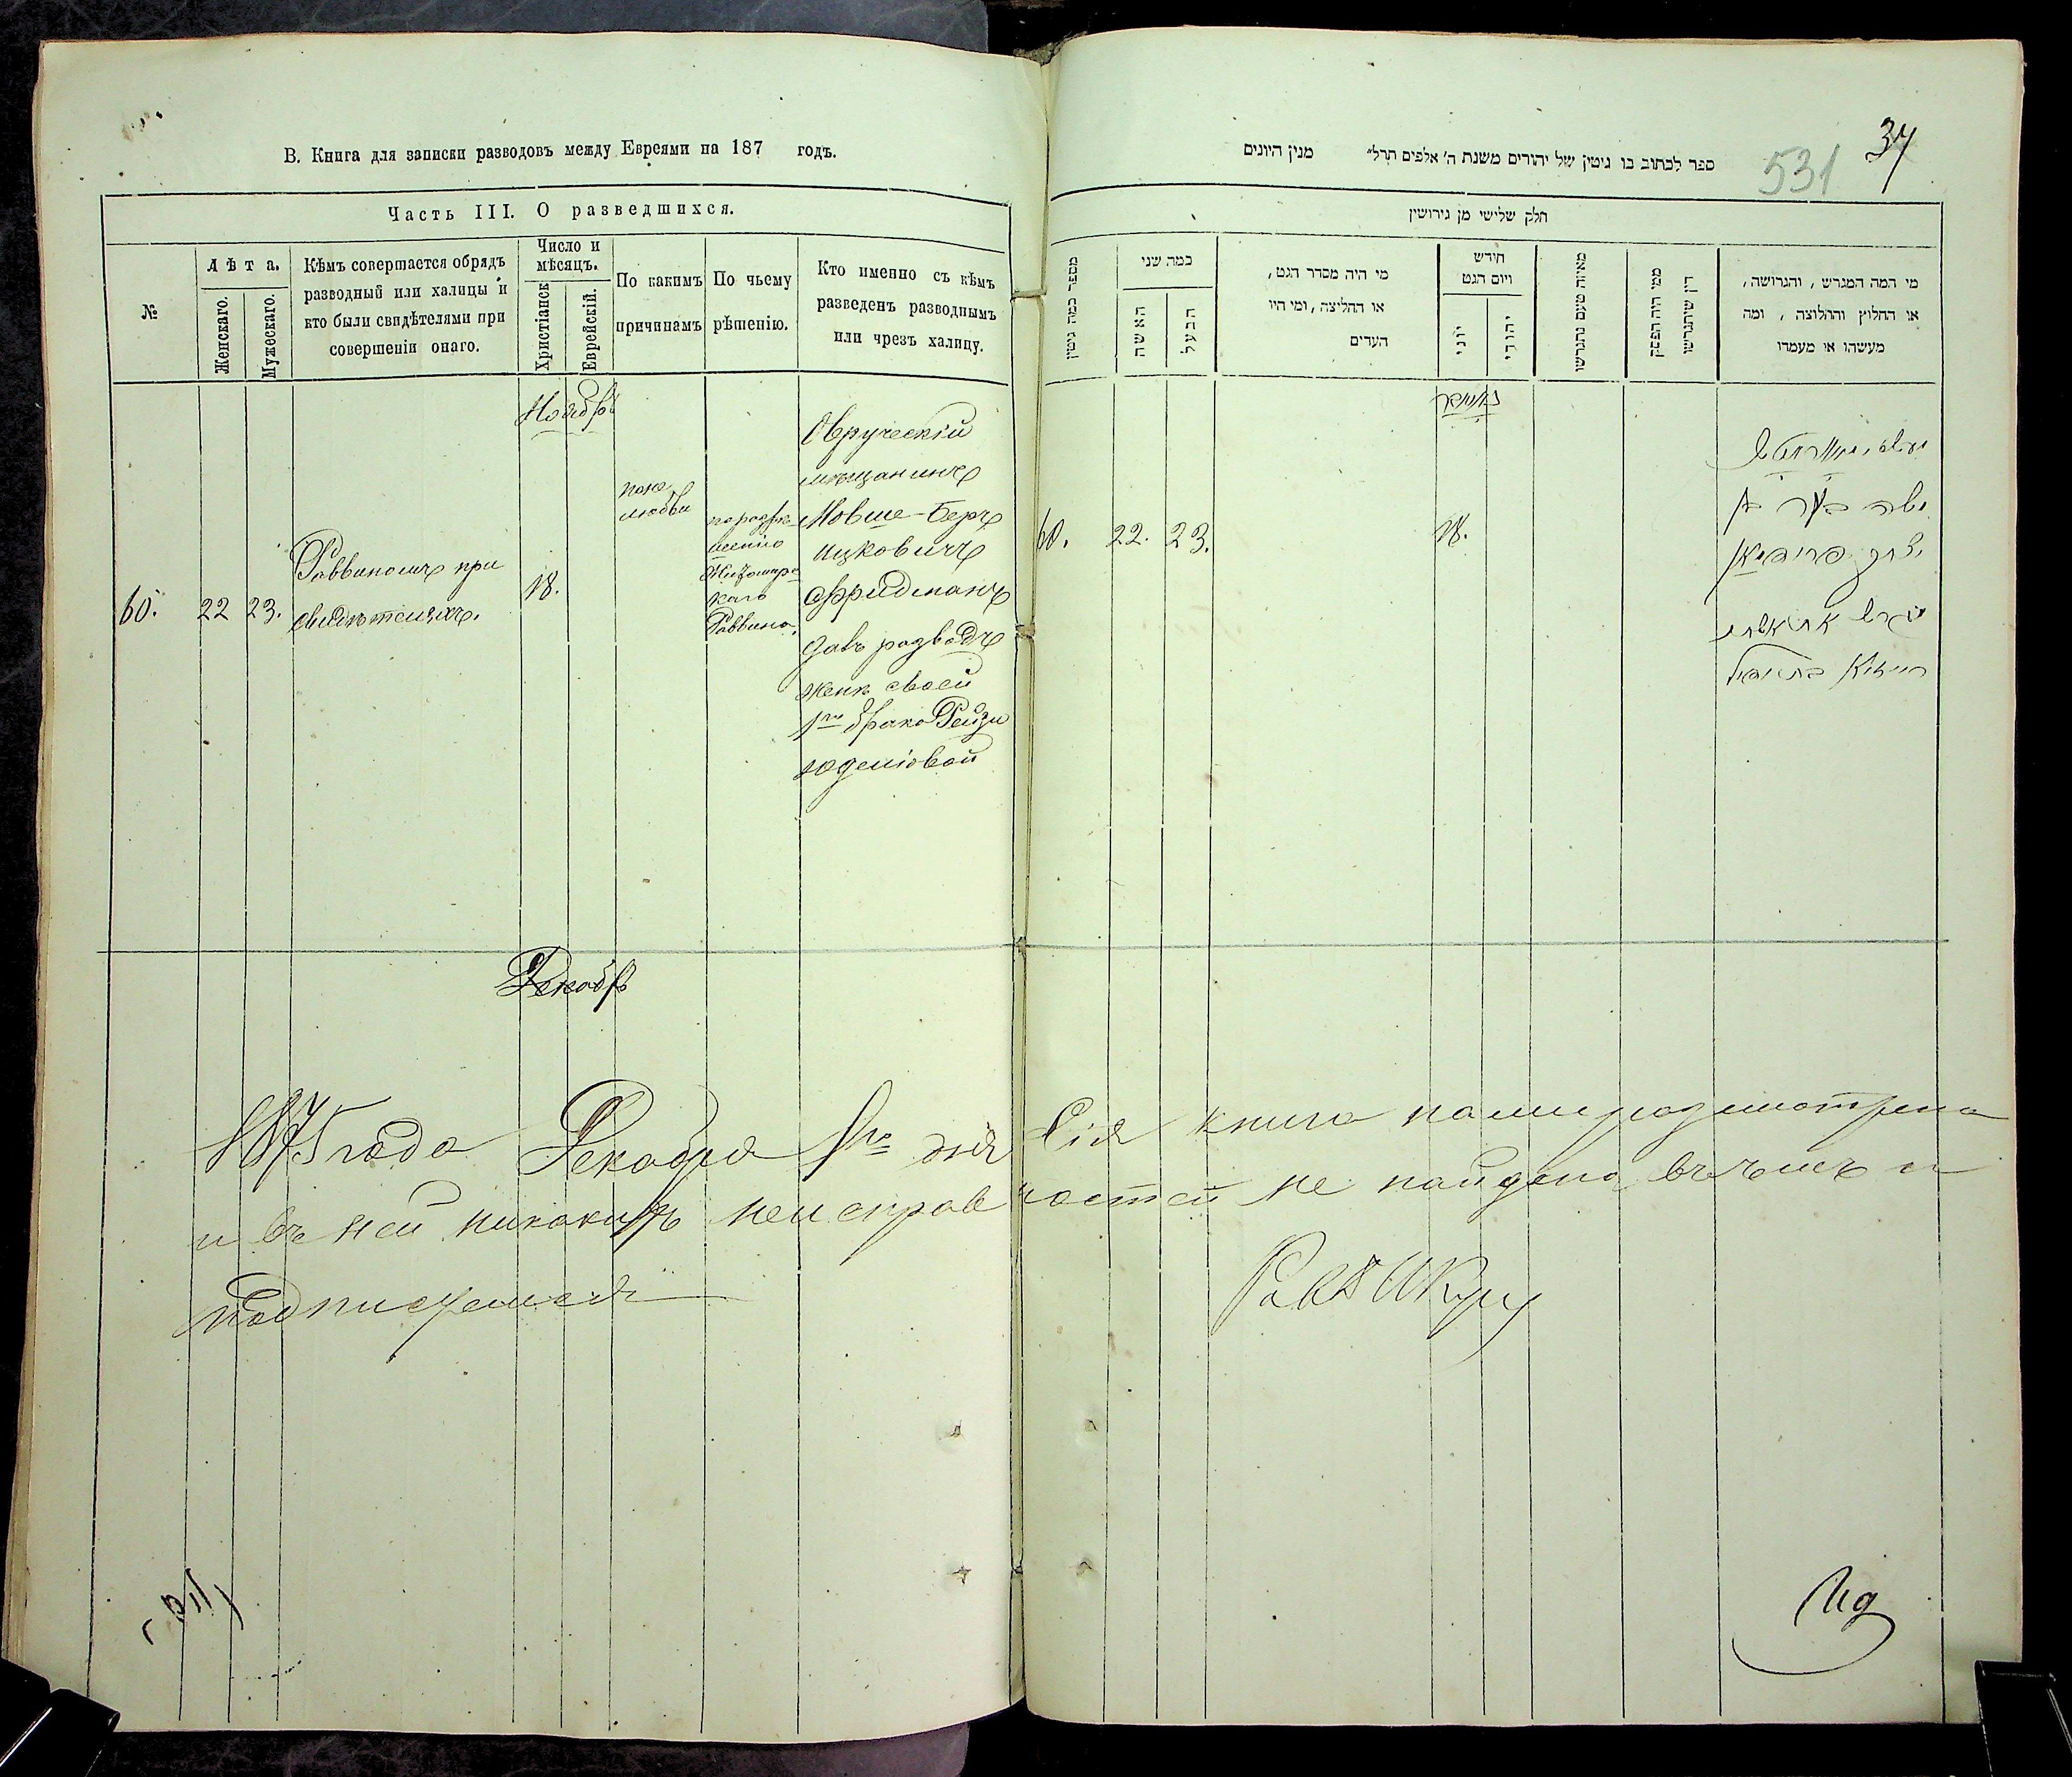 В. Книга для записки разводовъ между Евреями на 187 годъ.
Часть III. О разведшихся.
№
Лѣта.
Женскаго.
Мужескаго.
Кѣмъ совершается обрядъ
разводный или халицы и
кто были свидѣтелями при
совершеніи онаго.
Число и
мѣсяцъ.
Христіанск
Еврейскій.
По какимъ
причинамъ
По чьему
рѣшенію.
Кто именно съ кѣмъ
разведенъ разводнымъ
или чрезъ халицу.
Ноябрь
60.
22
23.
Раввиномъ при
свидѣтеляхъ.
18.
любви
Раввина.
Овручскій
мѣщанинъ
Мовше-Беръ
Ицковичъ
Фридманъ
давъ разводъ
женѣ своей
Рейзи
Декабрь
1875 года Декабря 1го дня Сія книга нами разсмотрена
и въ ней никакихъ неисправностей не найдено въ чемъ и
подписуемся
Рав
34
531
ספר לכתוב בו גיטין של יהודים משנת ה' אלפים תרל" מנין היונים
חלק שלישי מן גירושין
מספר כמה גיטין
כמה שני
האשה
הבעל
מי היה מסדר הגט,
או החליצה, ומי היו
העדים
חודש
ויום הגט
יוני
יהודי
מאיזה טעם נתגרשו
ממי היה הפסק
דין שיתגרשו
מי המה המגרש, והגרושה,
או החלוץ והחלוצה, ומה
מעשהו או מעמדו
נאיאבר
60.
22.
23.
18.
משה בער בן
יצחק פרידמאן
גירש את אשתו